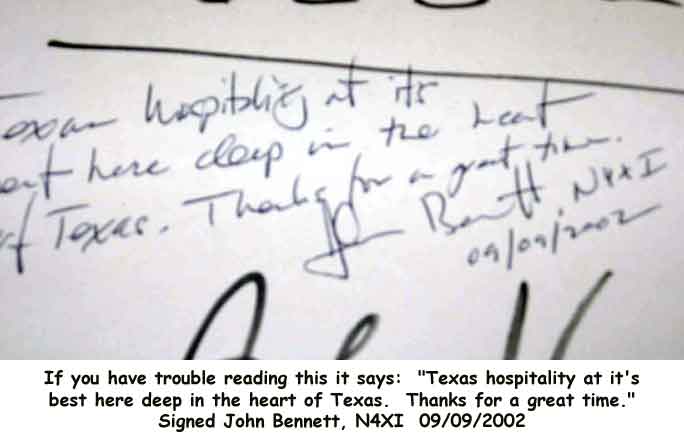 Texan hospitality at its
best here deep in the heart
of Texas. Thanks for a great time.
John Bennett, N4XI
09/09/2002
If you have trouble reading this it says: "Texas hospitality at it's
best here deep in the heart of Texas. Thanks for a great time."
Signed John Bennett, N4XI 09/09/2002